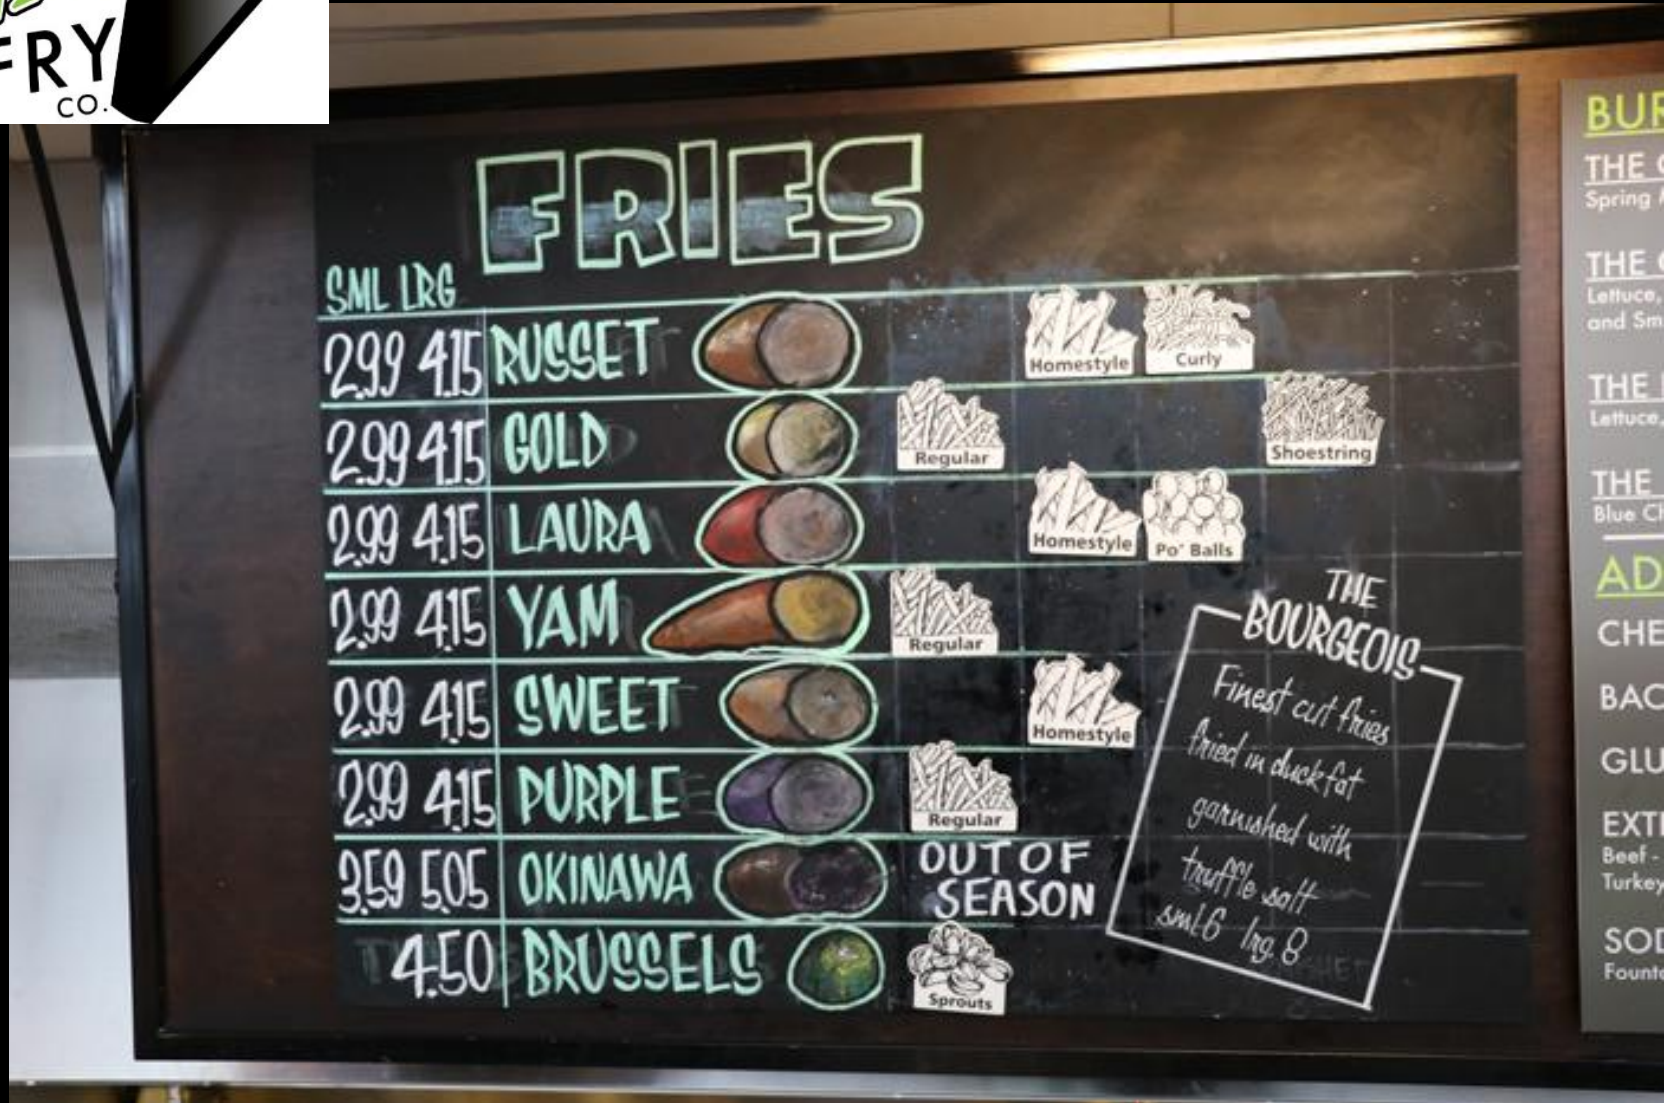 FRY
CO.
FRIES
SML LRG
2.99 4.15 RUSSET Homestyle Curly
2.99 4.15 GOLD Regular Shoestring
2.99 4.15 LAURA Homestyle Po' Balls
2.99 4.15 YAM Regular
2.99 4.15 SWEET Homestyle
2.99 4.15 PURPLE Regular
3.59 5.05 OKINAWA OUT OF
SEASON
4.50 BRUSSELS Sprouts
THE
BOURGEOIS
Finest cut fries
fried in duck fat
garnished with
truffle salt
sml 6 lrg. 8
THE
Spring
THE
Lettuce,
and
THE
Lettuce,
THE
Blue
Beef -
Turkey